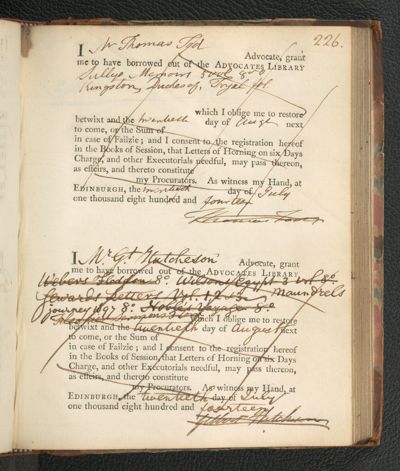 226.
I Mr Thomas Tod Advocate, grant
me to have borrowed out of the ADVOCATES LIBRARY
Sullys Memoirs 5 vol 8vo
Kingston, Duches of, Tryal fol.
which I oblige me to restore
betwixt and the twentieth day of Augt next
to come, or the Sum of
in case of Failzie; and I consent to the registration hereof
in the Books of Session, that Letters of Horning on six Days
Charge, and other Executorials needful, may pass thereon,
as effeirs, and thereto constitute
my Procurators. As witness my Hand, at
EDINBURGH, the twentieth day of July
one thousand eight hundred and fourteen
Thomas
I Mr Gt Hutcheson Advocate, grant
me to have borrowed out of the ADVOCATES LIBRARY
Webers 8o. Wilsons Egypt 3 vol 8o
Sewards Letters Maundrels
journey 1697 8o.
which I oblige me to restore
betwixt and the twentieth day of August next
to come, or the Sum of
in case of Failzie; and I consent to the registration hereof
in the Books of Session, that Letters of Horning on six Days
Charge, and other Executorials needful, may pass thereon,
as effeirs, and thereto constitute
my Procurators. As witness my Hand, at
EDINBURGH, the twentieth day of July
one thousand eight hundred and fourteen
Gilbert Hutcheson